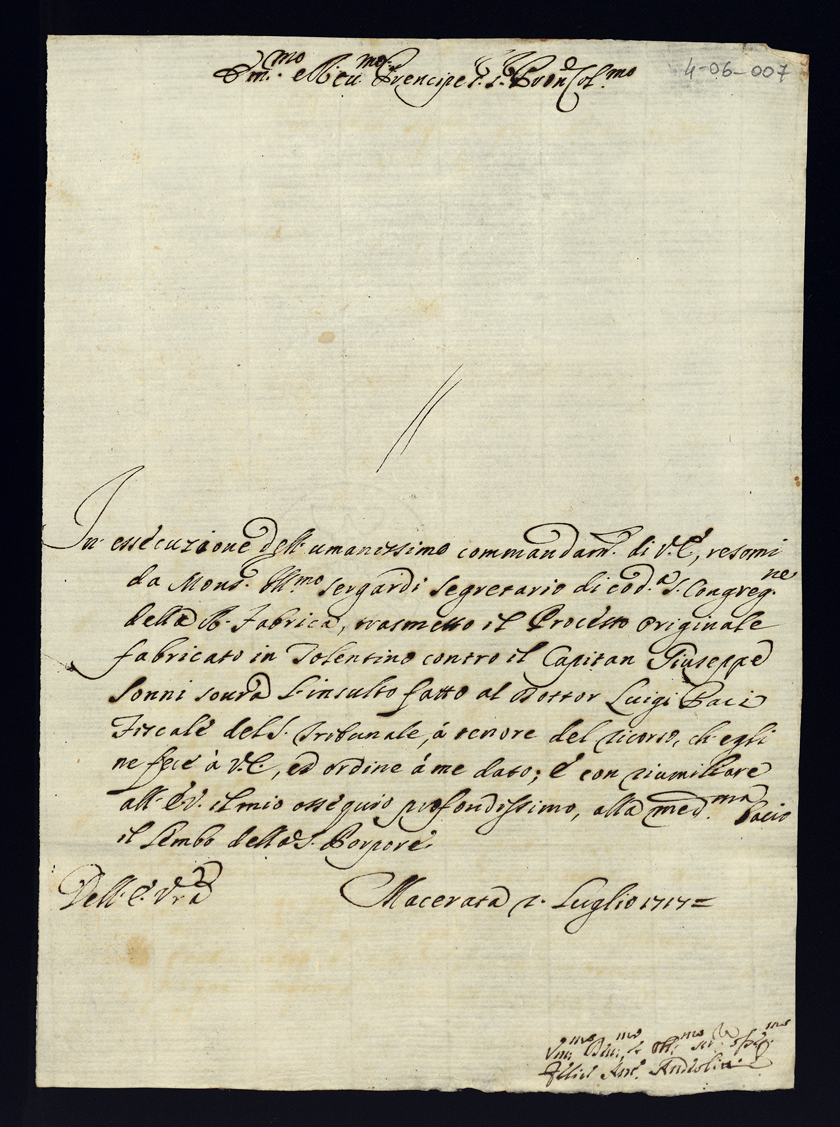 Em.mo e Reu.mo Prencipe S. S. Pron Col.mo
4-06-007
In essecuzione dell' umanissimo commandam. di V. E., resomi
da Mons. Ill.mo Sergardi Segretario di cod.a S. Congreg.ne
della R. Fabrica, trasmetto il Processo originale
fabricato in Tolentino contro il Capitan Giuseppe
Sonni soura l'insulto fatto al Dottor Luigi Paci
Fiscale del S. Tribunale, à tenore del ricorso, ch' egli
ne fece à V. E., ed ordine à me dato; E con riumiliare
all' E. V. il mio ossequio profondissimo, alla med.ma bacio
il lembo della S. Porpora.
Dell' E. Vra
Macerata 2. Luglio 1717=
Vm.mo Deu.mo et Obl.mo
Felice Ant.